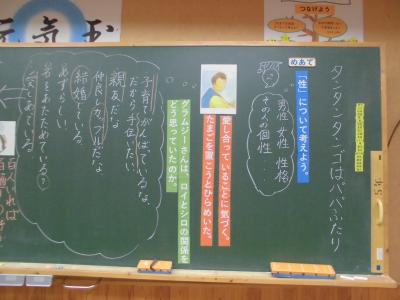 タンタンタンゴはパパふたり
めあて
「性」について考えよう。
男性 女性 性格
その人の個性…
愛し合っていることに気づく。
たまごを置こうとひらめいた。
グラムジーさんは、ロイとシロの関係を
どう思っていたのか。
子育てがんばっているな、
だから手伝いたい。
親友だな
仲良しカップルだな
結婚している
めずらしい
石をあたためている？
愛しあっている
元気玉
つなげよう